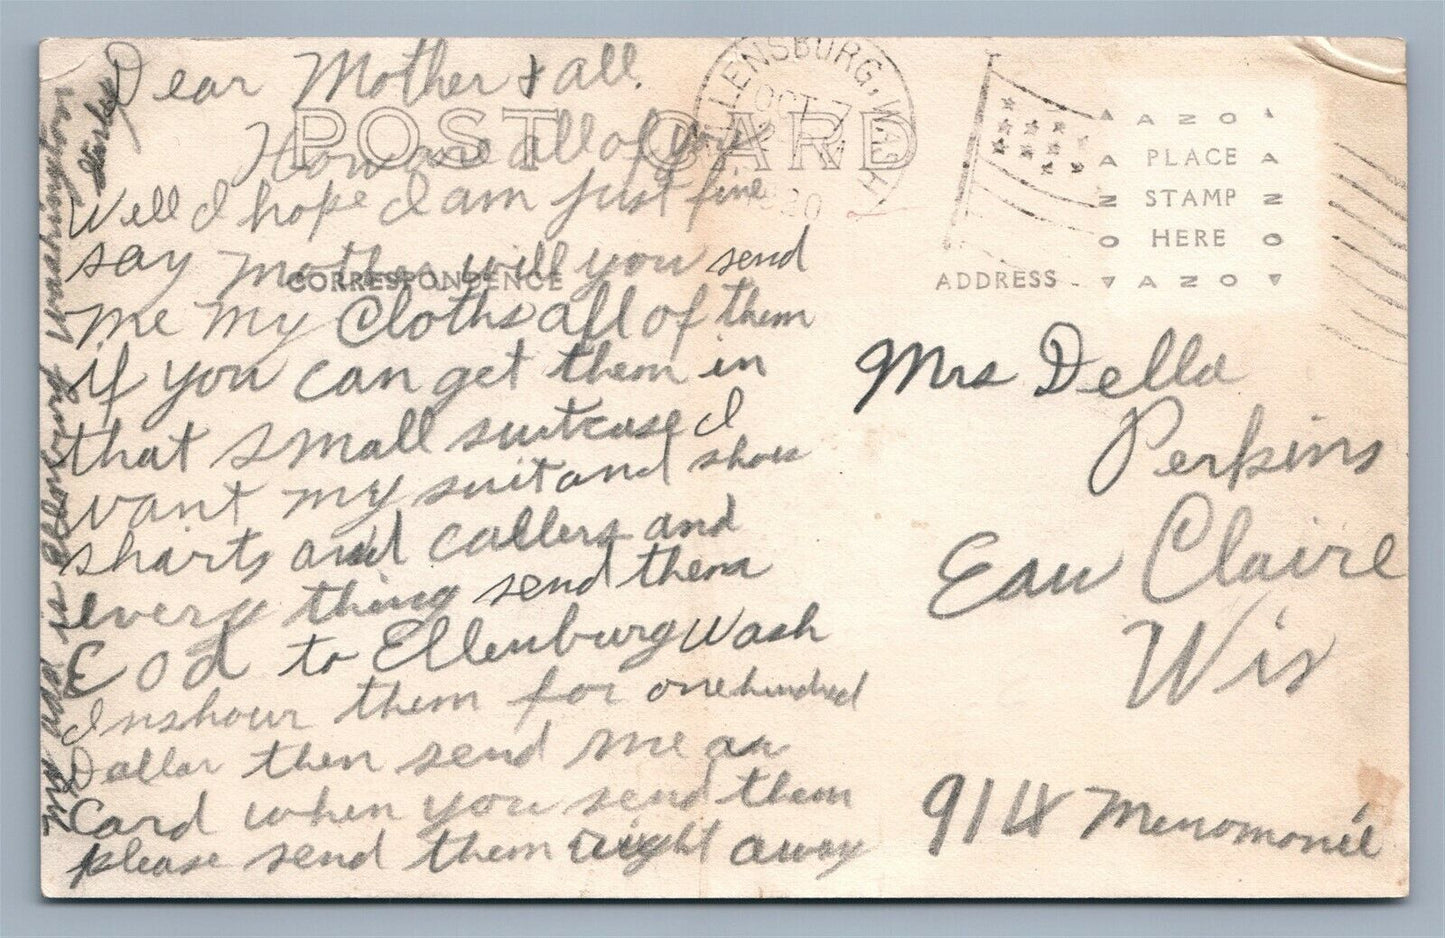 Dear Mother & all.
How are all of you
Well I hope I am just fine
say Mother will you send
me my Cloths all of them
if you can get them in
that small suitcase I
want my suit and shoes
sharts and callers and
every thing send them
C O d to Ellenburg Wash
Inshour them for one hundred
Dollar then send me a
Card when you send them
please send them right away
My ads is Ellenburg Washington
POST CARD
CORRESPONDENCE
ELLENSBURG, WASH
OCT 7
ADDRESS
AZO
PLACE
STAMP
HERE
AZO
Mrs Della
Perkins
Eau Claire
Wis
914 Menomonie